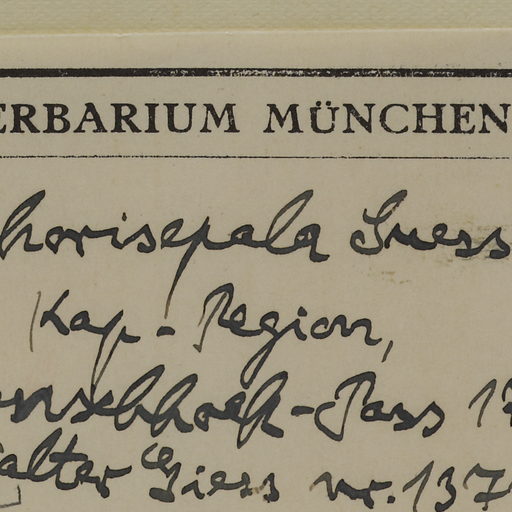 ERBARIUM MÜNCHEN
horisepala Suess
Kap-Region,
Pass 17
alter Giess nr. 137